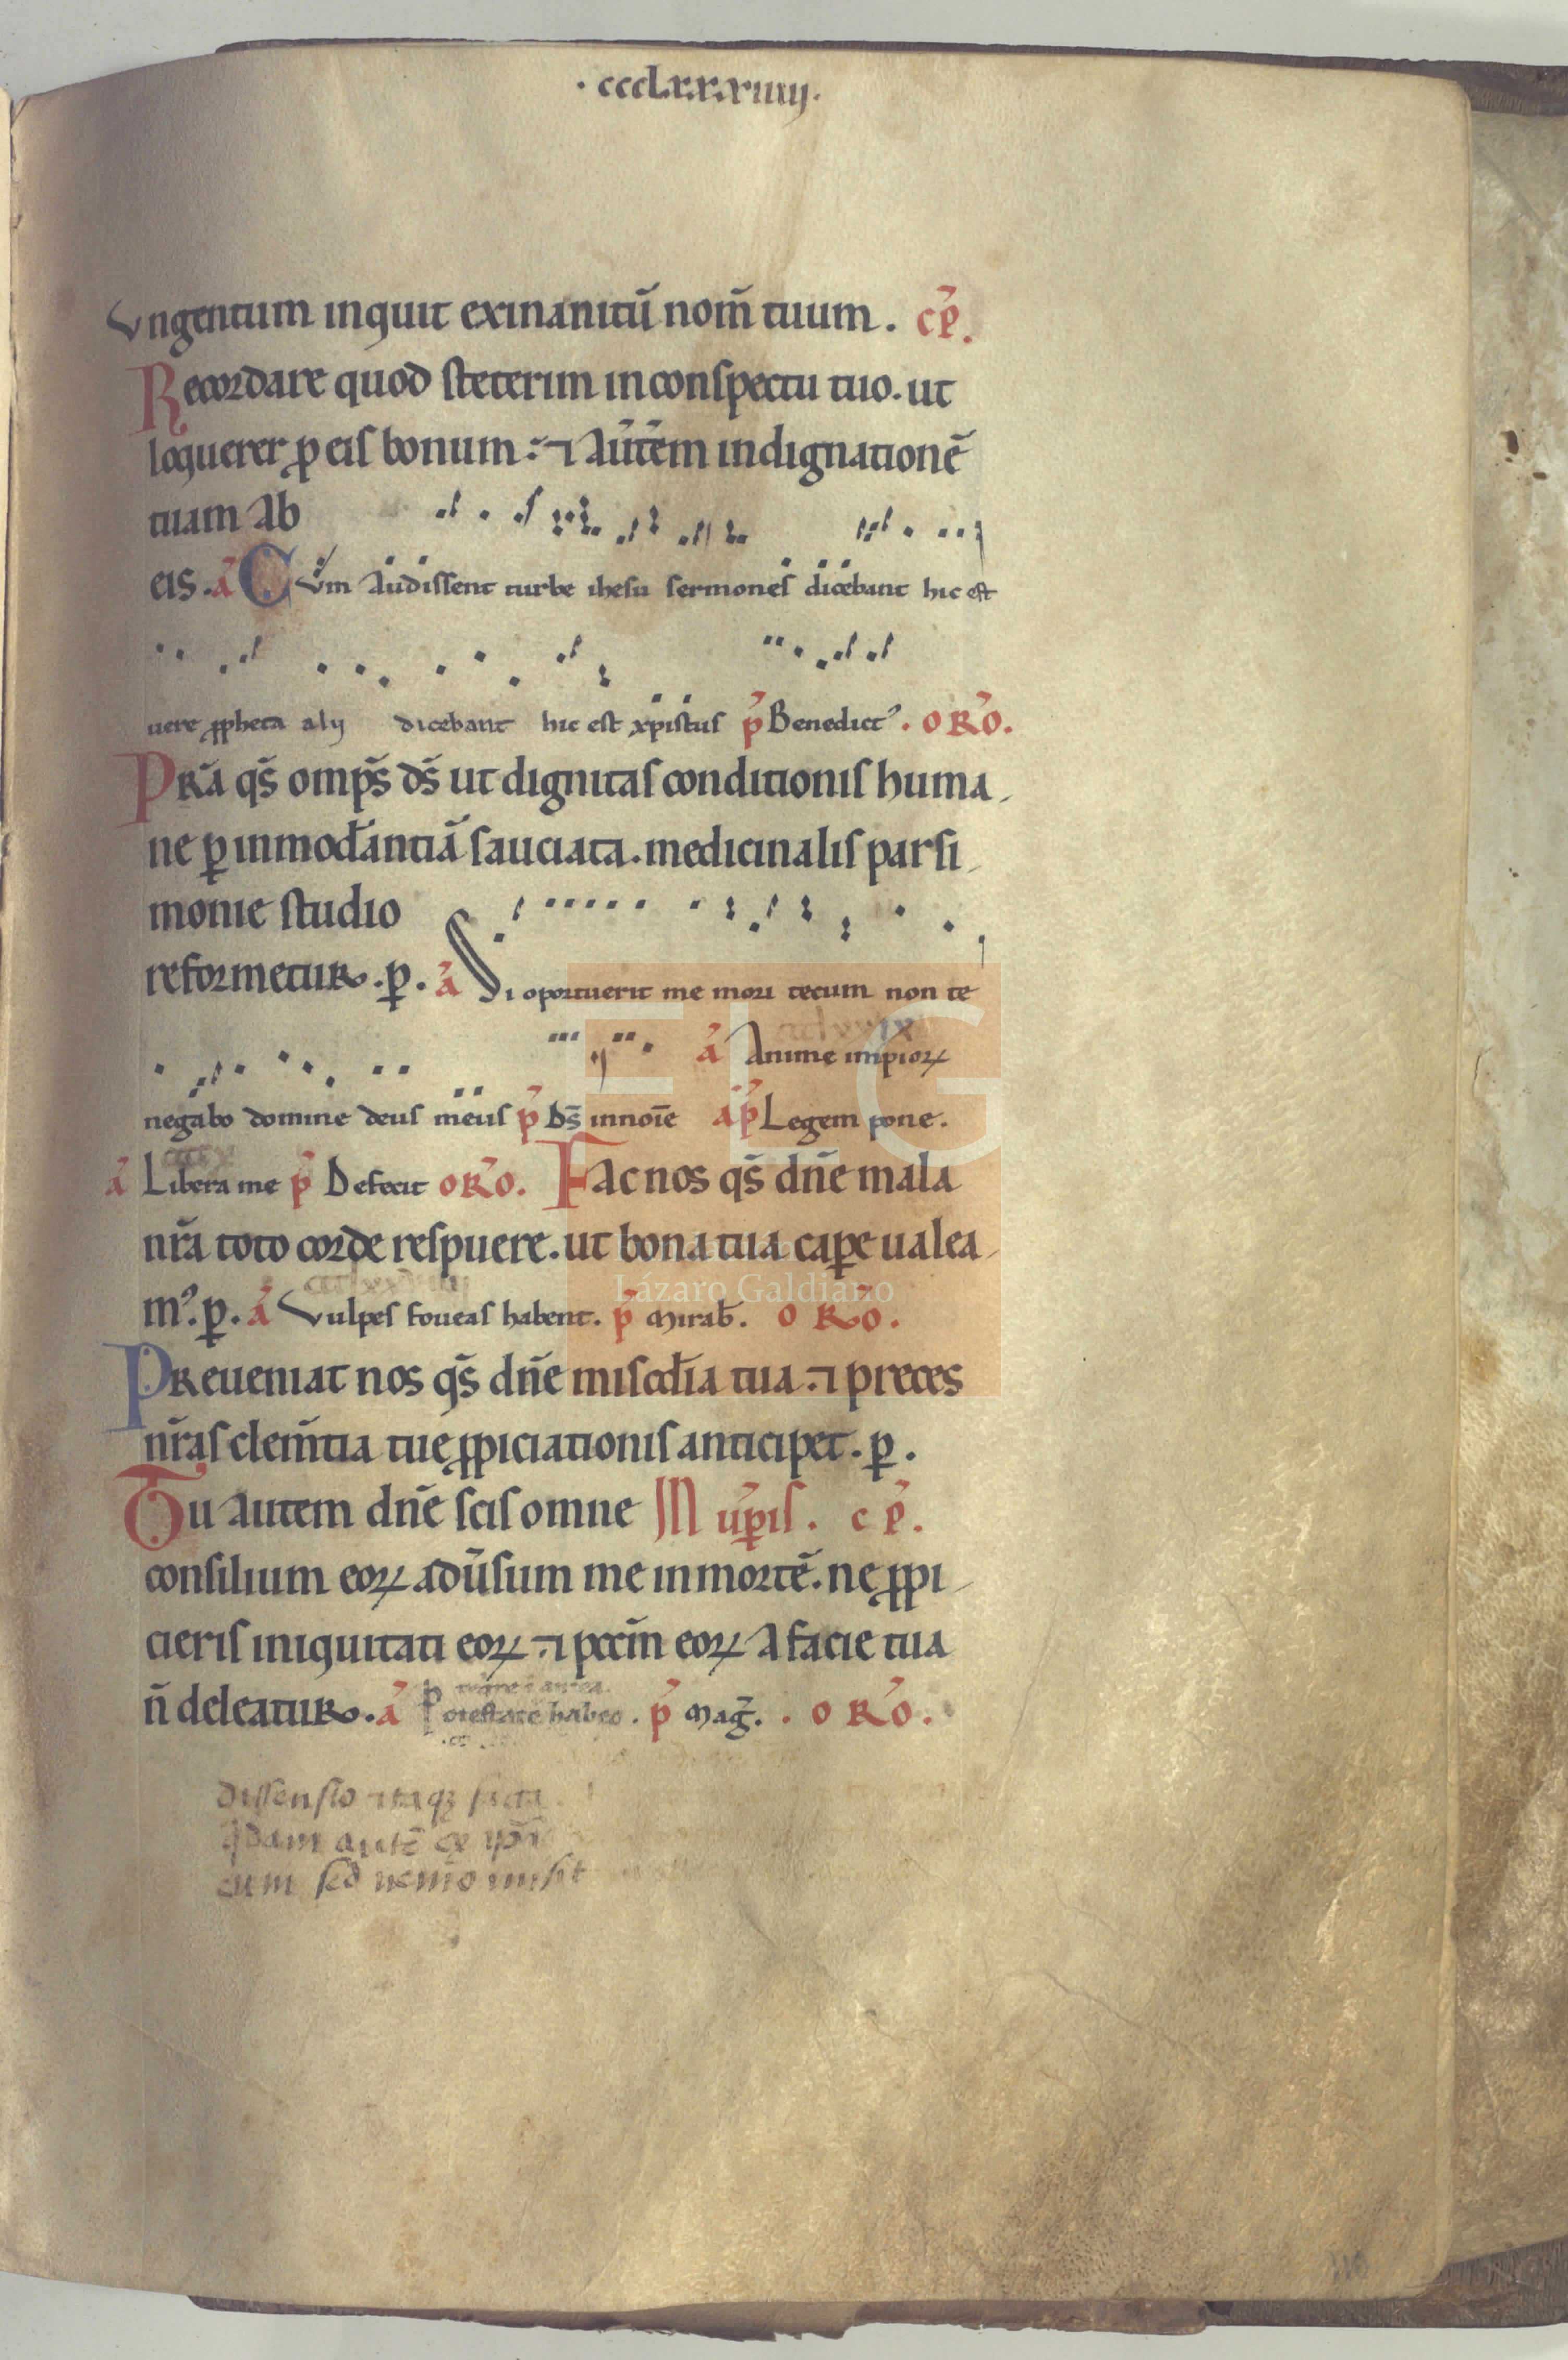 · ccclxxxxiiiij·
Vngentum inquit exinanitū nom̄ tuum. cp̄.
Recordare quod steterim in conspectu tuo. ut
loquerer ꝓ eis bonum: ⁊ aūtēm indignationē
tuam ab
eis. ā Cum audissent turbe ihesu sermones dicebant hic est
uere ꝓpheta alij dicebant hic est xpistus p̄ Benedict᾽. oRo.
PRā qs̄ omps̄ ds̄ ut dignitas conditionis huma
ne ꝑ inmod̄antiā sauciata. medicinalis parsi
monie studio
reformetur. ꝑ. ā Si oportuerit me mori tecum non te
ā Anime impioꝝ
negabo domine deus meus p̄ Ds̄ in noīe ap̄ Legem pone.
ā Libera me p̄ Defecit oRo. Fac nos qs̄ dn̄e mala
nr̄a toto corde respuere. ut bona tua caꝑe ualea
m᾽. ꝑ. ā Vulpes foueas habent. p̄ Mirab̄. oRo.
PReueniat nos qs̄ dn̄e miscd̄ia tua. ⁊ preces
nr̄as clem̄tia tuę ꝓpiciationis anticipet. ꝑ.
Tu autem dn̄e scis omne IN uꝑis. cp̄.
consilium eoꝝ adūsum me in mortē. ne ꝓpi
cieris iniquitati eoꝝ ⁊ pccm̄ eoꝝ a facie tua
n̄ deleatur. ā Potestatē habeo. p̄ Maḡ. . oRo.
dissensio itaqꝫ facta
qdam autē ex ip̄i
eum sed nemo misit
FLG
Lázaro Galdiano